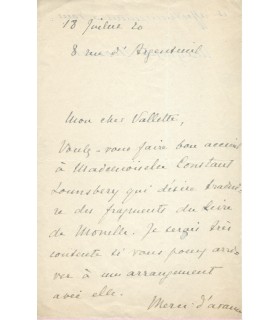 18 Juillet 20
8 rue d'Argenteuil
Mon cher Vallette,
Voulez-vous faire bon accueil
à Mademoiselle Constant
Lounsbery qui désire tradui-
re des fragments du Livre
de Monelle. Je serais très
contente si vous pouvez arri-
ver à un arrangement
avec elle.
Merci d'avance